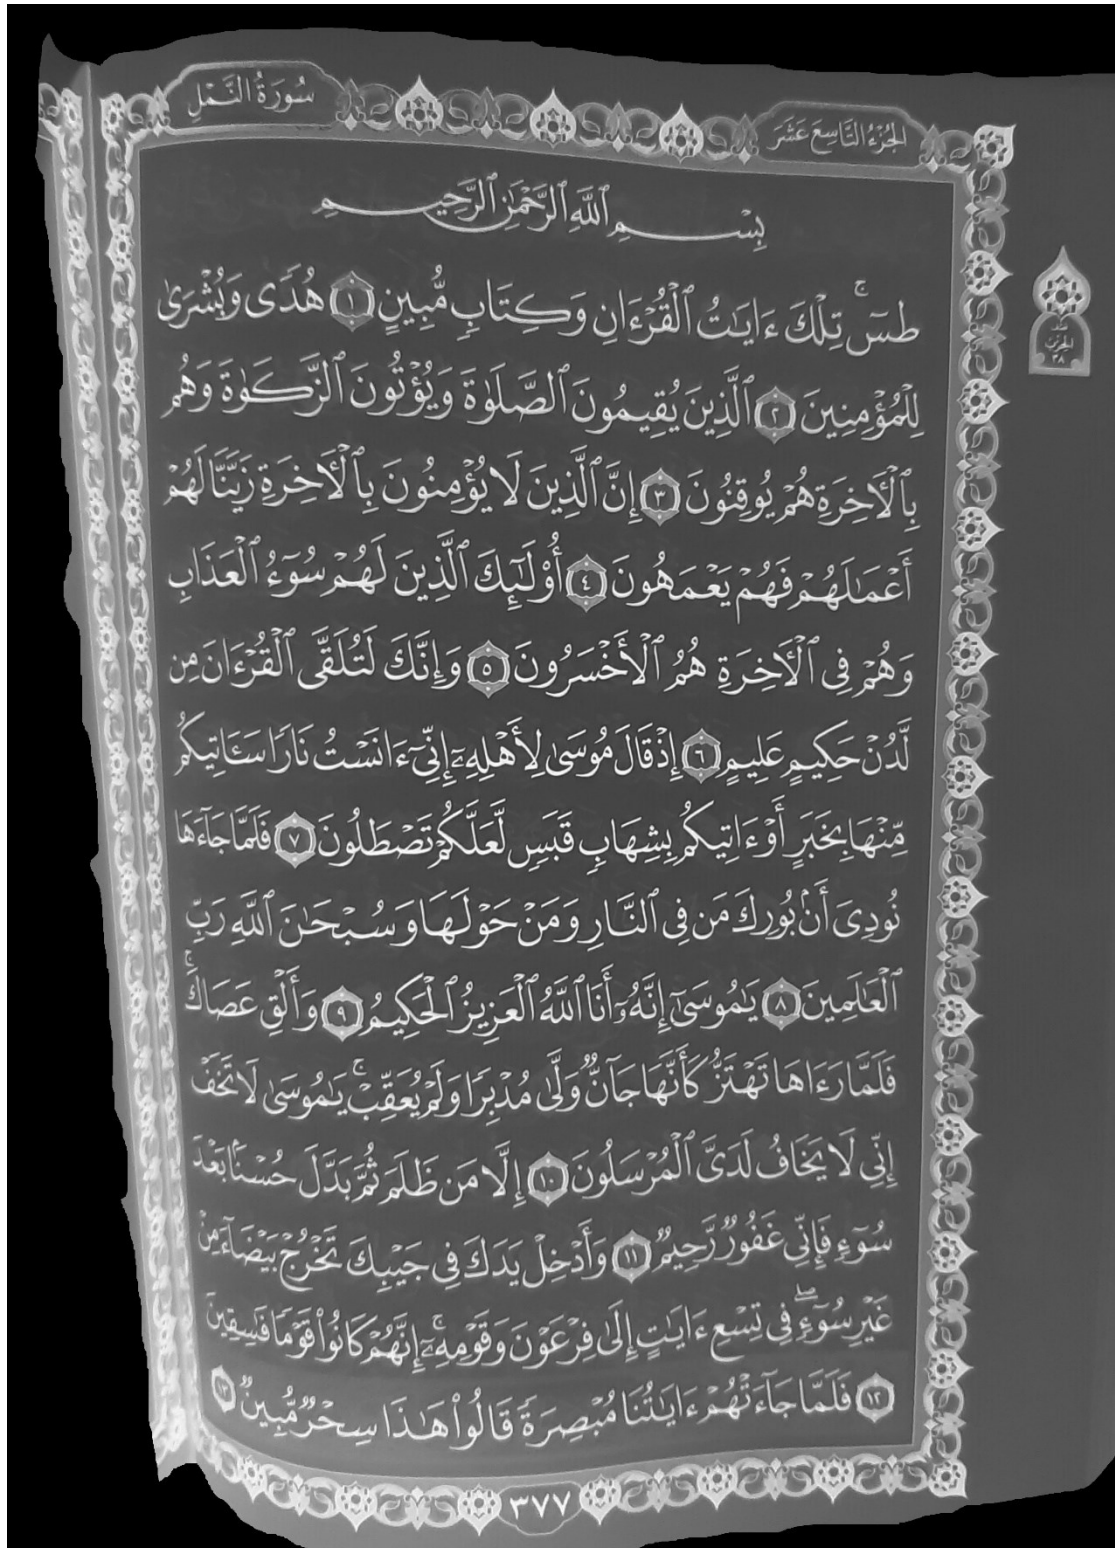 الجُزْءُ التَّاسِعَ عَشَرَ
سُورَةُ النَّمْلِ
بِسْمِ ٱللَّهِ ٱلرَّحْمَٰنِ ٱلرَّحِيمِ
طسٓۚ تِلْكَ ءَايَٰتُ ٱلْقُرْءَانِ وَكِتَابٍ مُّبِينٍ ١ هُدًى وَبُشْرَىٰ
لِلْمُؤْمِنِينَ ٢ ٱلَّذِينَ يُقِيمُونَ ٱلصَّلَوٰةَ وَيُؤْتُونَ ٱلزَّكَوٰةَ وَهُم
بِٱلْأَخِرَةِ هُمْ يُوقِنُونَ ٣ إِنَّ ٱلَّذِينَ لَا يُؤْمِنُونَ بِٱلْأَخِرَةِ زَيَّنَّا لَهُمْ
أَعْمَٰلَهُمْ فَهُمْ يَعْمَهُونَ ٤ أُوْلَٰٓئِكَ ٱلَّذِينَ لَهُمْ سُوٓءُ ٱلْعَذَابِ
وَهُمْ فِي ٱلْأَخِرَةِ هُمُ ٱلْأَخْسَرُونَ ٥ وَإِنَّكَ لَتُلَقَّى ٱلْقُرْءَانَ مِن
لَّدُنْ حَكِيمٍ عَلِيمٍ ٦ إِذْ قَالَ مُوسَىٰ لِأَهْلِهِۦٓ إِنِّيٓ ءَانَسْتُ نَارًا سَـَٔاتِيكُم
مِّنْهَا بِخَبَرٍ أَوْ ءَاتِيكُم بِشِهَابٍ قَبَسٍ لَّعَلَّكُمْ تَصْطَلُونَ ٧ فَلَمَّا جَآءَهَا
نُودِيَ أَنۢ بُورِكَ مَن فِي ٱلنَّارِ وَمَنْ حَوْلَهَا وَسُبْحَٰنَ ٱللَّهِ رَبِّ
ٱلْعَٰلَمِينَ ٨ يَٰمُوسَىٰٓ إِنَّهُۥٓ أَنَا ٱللَّهُ ٱلْعَزِيزُ ٱلْحَكِيمُ ٩ وَأَلْقِ عَصَاكَۚ
فَلَمَّا رَءَاهَا تَهْتَزُّ كَأَنَّهَا جَآنٌّ وَلَّىٰ مُدْبِرًا وَلَمْ يُعَقِّبْۚ يَٰمُوسَىٰ لَا تَخَفْ
إِنِّي لَا يَخَافُ لَدَيَّ ٱلْمُرْسَلُونَ ١٠ إِلَّا مَن ظَلَمَ ثُمَّ بَدَّلَ حُسْنًۢا بَعْدَ
سُوٓءٍ فَإِنِّي غَفُورٌ رَّحِيمٌ ١١ وَأَدْخِلْ يَدَكَ فِي جَيْبِكَ تَخْرُجْ بَيْضَآءَ مِنْ
غَيْرِ سُوٓءٍۖ فِي تِسْعِ ءَايَٰتٍ إِلَىٰ فِرْعَوْنَ وَقَوْمِهِۦٓۚ إِنَّهُمْ كَانُوا۟ قَوْمًا فَٰسِقِينَ
١٢ فَلَمَّا جَآءَتْهُمْ ءَايَٰتُنَا مُبْصِرَةً قَالُوا۟ هَٰذَا سِحْرٌ مُّبِينٌ ١٣
٣٧٧